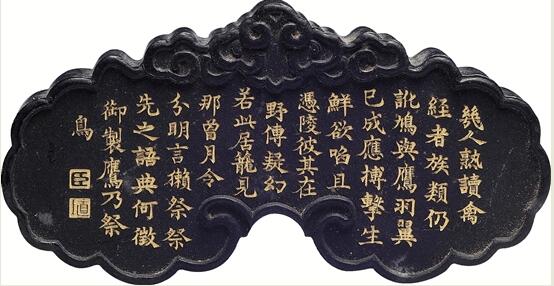 幾人熟讀禽
經者族類仍
訛鳩與鷹羽翼
已成應搏擊生
鮮欲啗且
憑陵彼其在
野傳疑幻
若此居籠見
那曾月令
分明言獺祭祭
先之語典何徵
御製鷹乃祭
鳥
臣